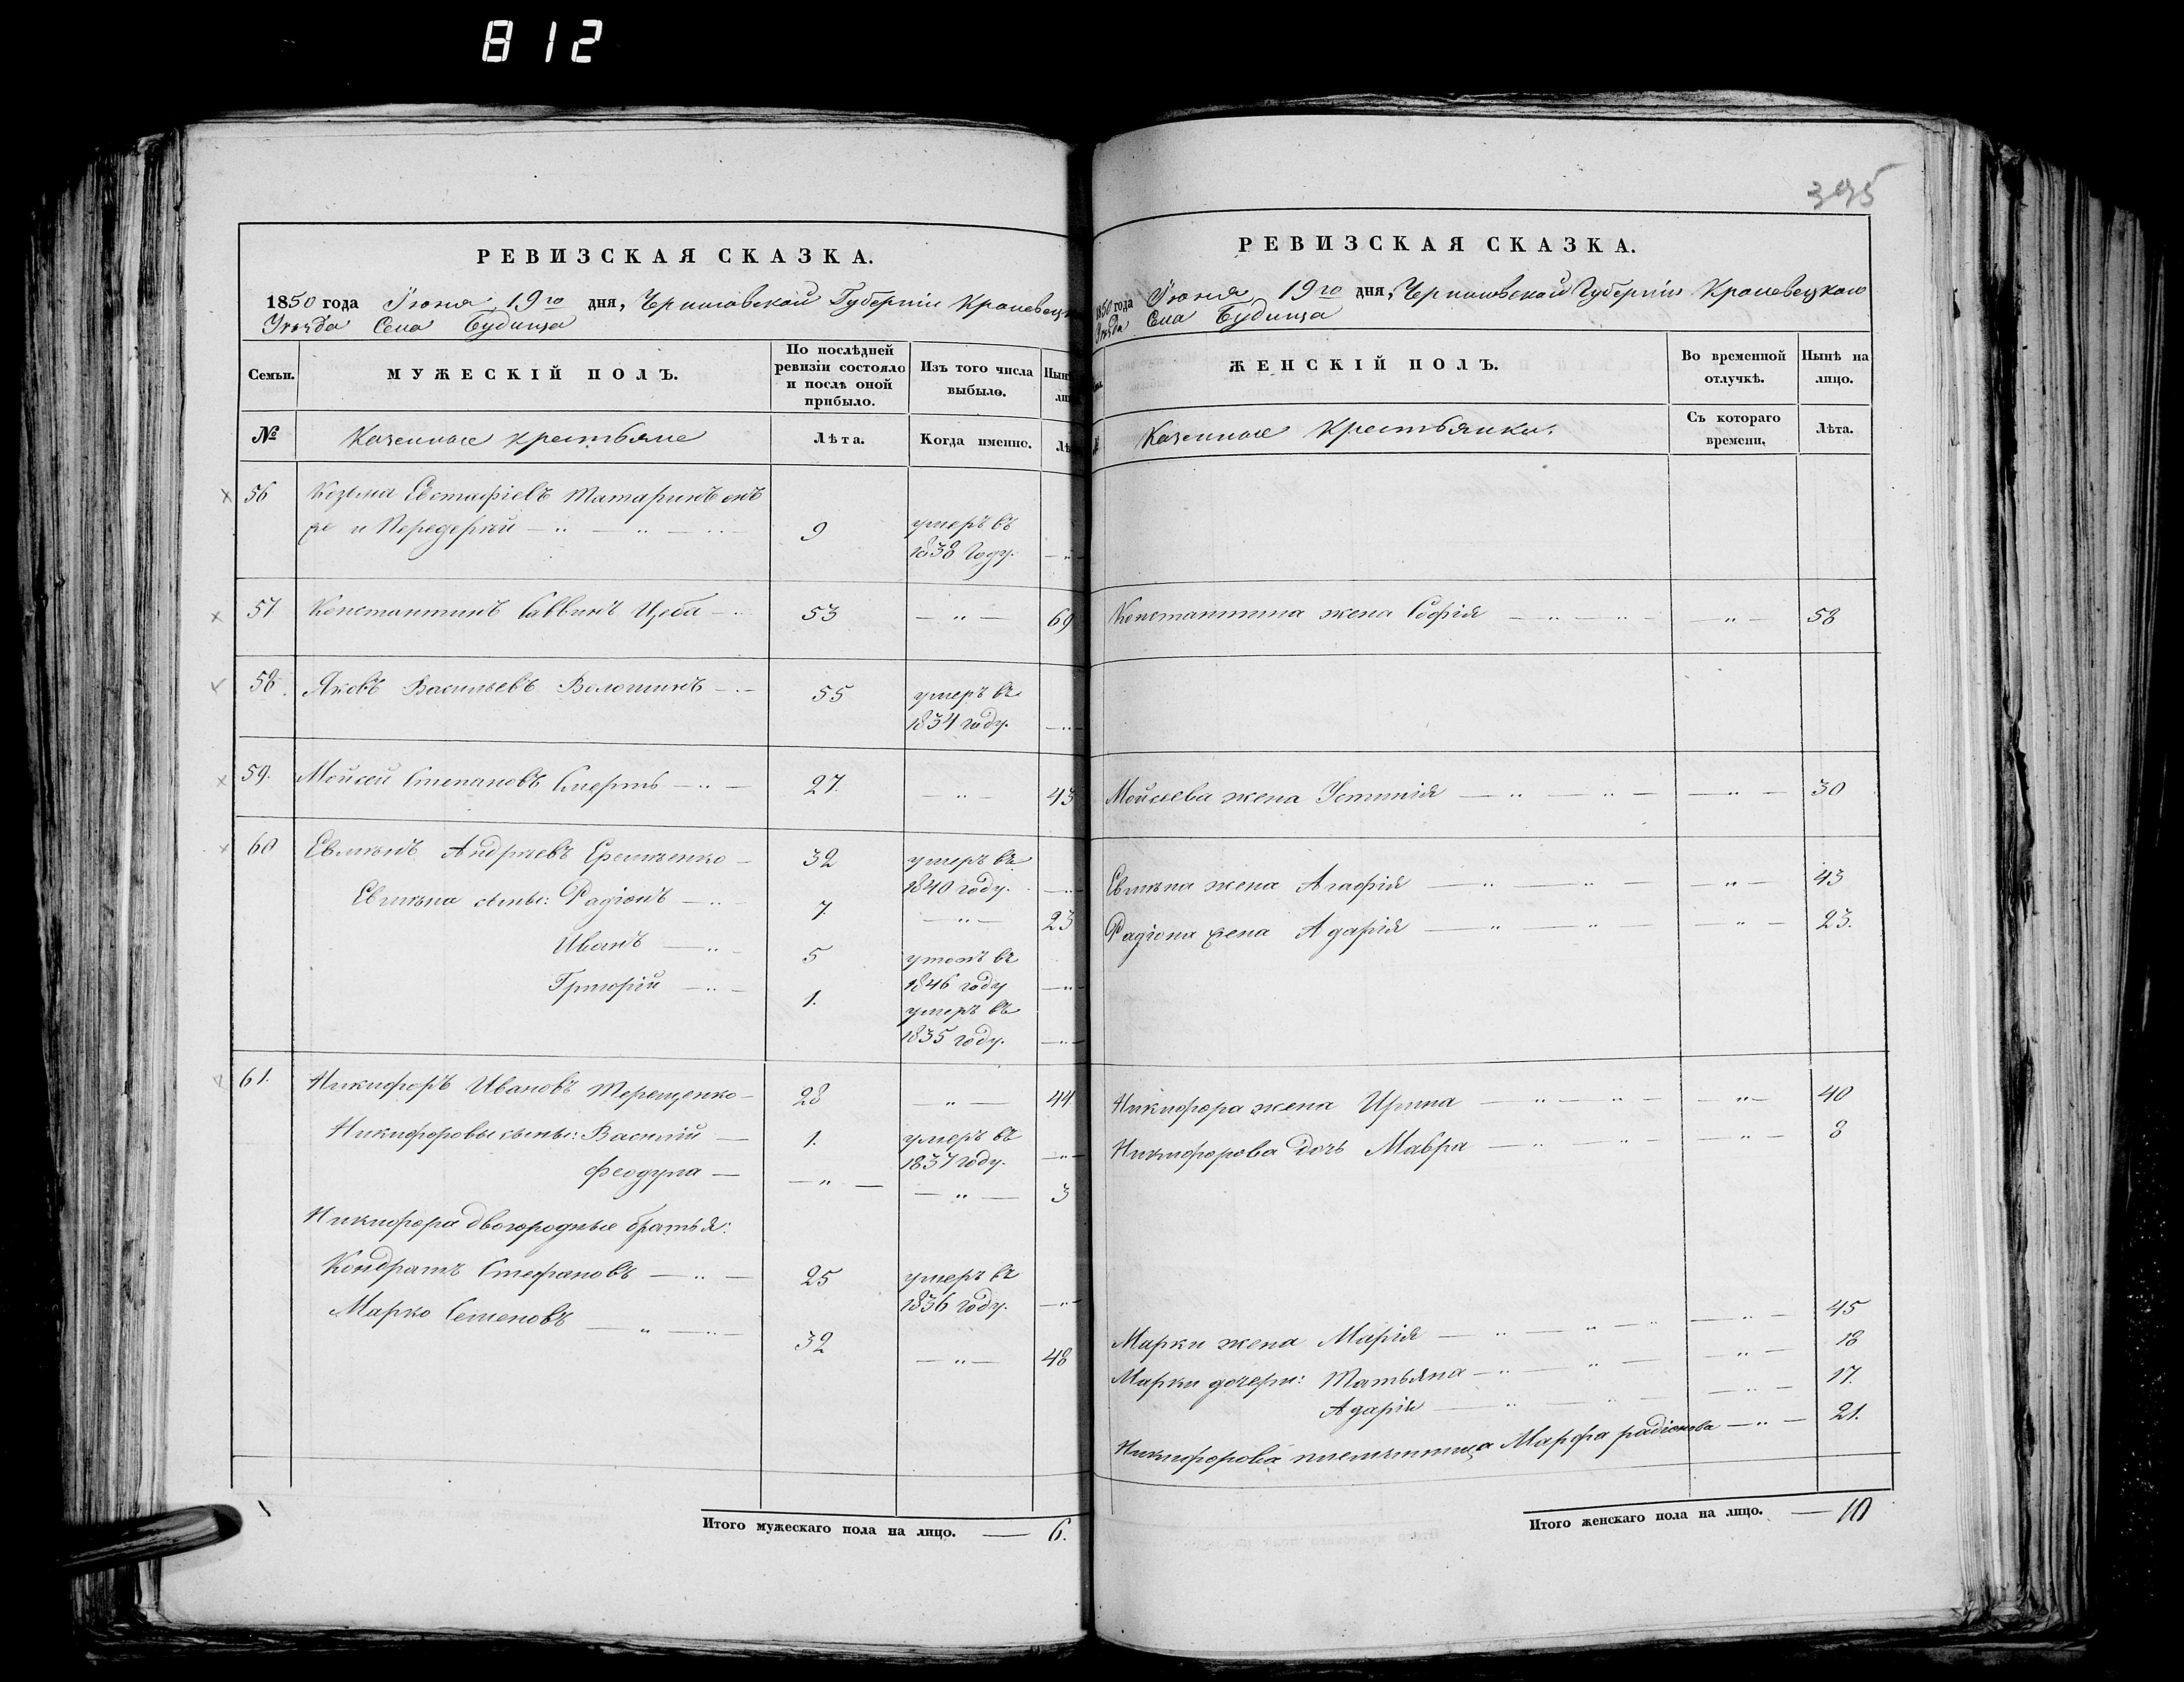 812
395
РЕВИЗСКАЯ СКАЗКА.
1850 года Июня 19го дня, Черниговской Губерніи Кролевецк
Уѣзда Села Будища
Семьи.
МУЖЕСКІЙ ПОЛЪ.
По послѣдней ревизіи состояло и послѣ оной прибыло.
Изъ того числа выбыло.
№
Казенные крестьяне
Лѣта.
Когда именно.
56 Козьма Евстафіевъ Татаринъ онъ
же и Передерѣй 9 умеръ въ
1838 году.
57 Константинъ Саввинъ 53 69
58. Яковъ Васильевъ Волошинъ 55 умеръ въ
1834 году.
59. Мойсей Степановъ Смерть 27. 43
60 Евлкѣнъ Андрѣевъ 32 умеръ въ
1840 году.
сыны: Радіонъ 7. 23
Иванъ 5 въ
1846 году
Григорій 1. умеръ въ
1835 году.
61. Никифоръ Ивановъ Терещенко 28 44
Никифоровы сыны: Василій 1. умеръ въ
1837 году.
Феодула 3
Никифора двоюродные братья:
Кондратъ Стефановъ 25 умеръ въ
1836 году.
Марко Семеновъ 32 48
Итого мужескаго пола на лицо. 6.
РЕВИЗСКАЯ СКАЗКА.
1850 года Июня 19го дня, Черниговской Губерніи Кролевецкаго
Уѣзда Села Будища
ЖЕНСКІЙ ПОЛЪ.
Во временной отлучкѣ.
Нынѣ на лицо.
Казенные Крестьянки.
Съ котораго времени.
Лѣта.
Константина жена Софія 58
Мойсеева жена Устинія 30
жена Агафія 43
Радіона жена Адарія 23.
Никифора жена Ирина 40
Никифорова дочь Мавра 8
Марки жена Марія 45
Марки дочери: Татьяна 18
Адарія 17.
Никифорова племѣнница Марфа радіонова 21.
Итого женскаго пола на лицо. 10